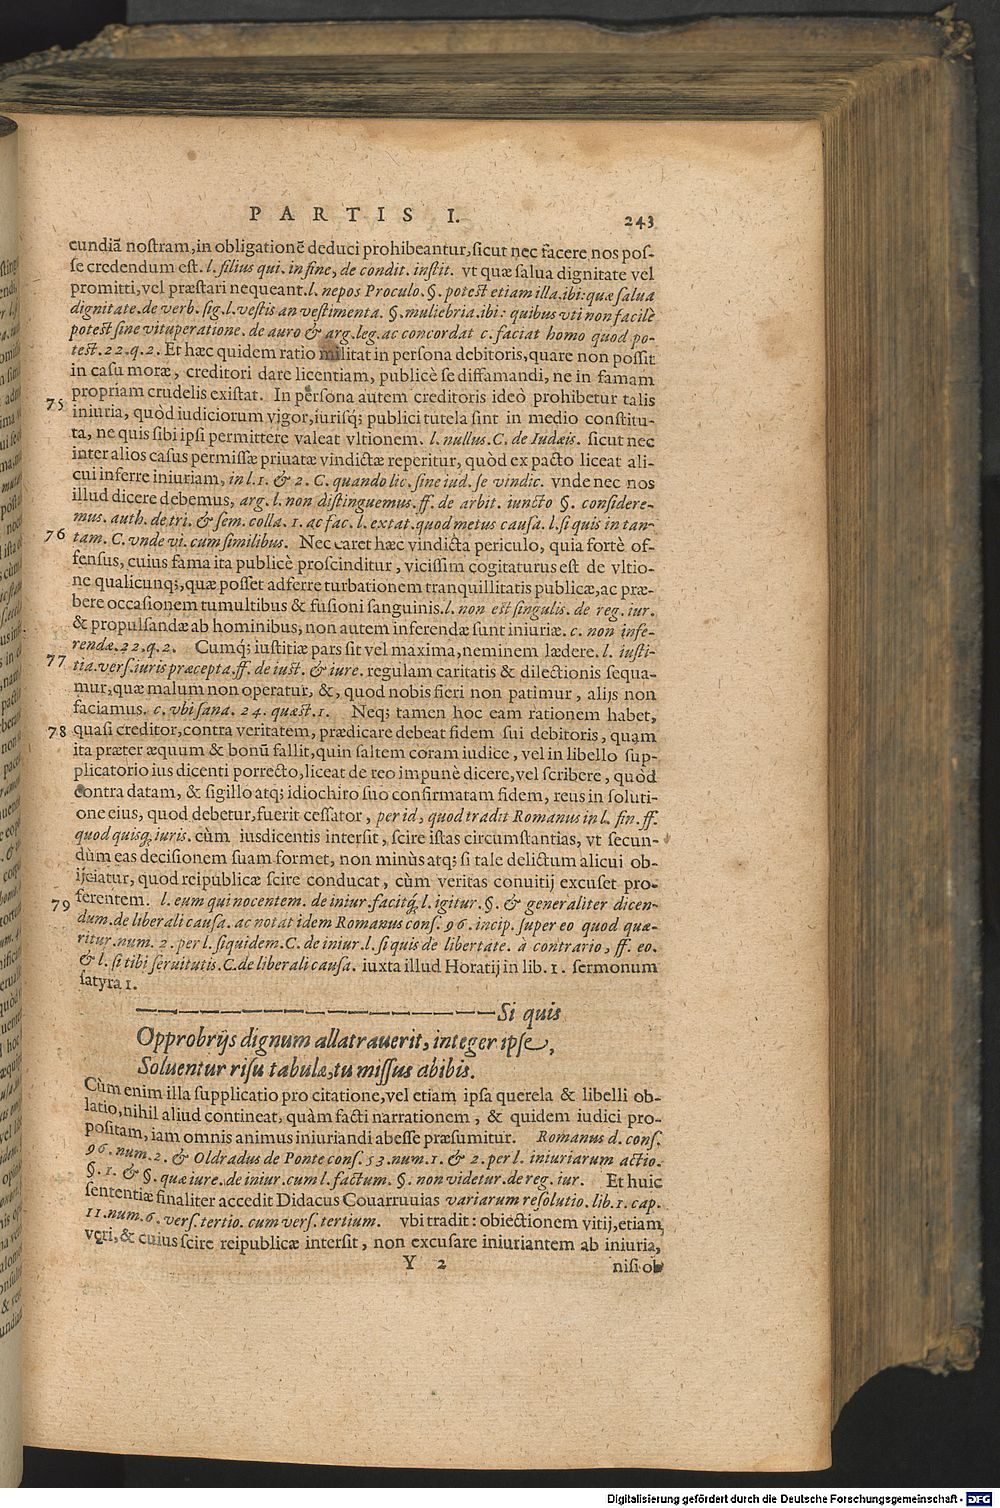 PARTIS I. 243
cundiã nostram, in obligationẽ deduci prohibeantur, sicut nec facere nos pos-
se credendum est. l. filius qui. in fine, de condit. instit. vt quæ salua dignitate vel
promitti, vel præstari nequeant. l. nepos Proculo. §. potest etiam illa. ibi: quæ salua
dignitate. de verb. sig. l. vestis an vestimenta. §. muliebria. ibi: quibus vti non facilè
potest sine vituperatione. de auro & arg. leg. ac concordat c. faciat homo quod po-
test. 22. q. 2. Et hæc quidem ratio militat in persona debitoris, quare non possit
in casu moræ, creditori dare licentiam, publicè se diffamandi, ne in famam
propriam crudelis existat. In persona autem creditoris ideò prohibetur talis
75 iniuria, quòd iudiciorum vigor, iurisq; publici tutela sint in medio constitu-
ta, ne quis sibi ipsi permittere valeat vltionem. l. nullus. C. de Iudæis. sicut nec
inter alios casus permissæ priuatæ vindictæ reperitur, quòd ex pacto liceat ali-
cui inferre iniuriam, in l. 1. & 2. C. quando lic. sine iud. se vindic. vnde nec nos
illud dicere debemus, arg. l. non distinguemus. ff. de arbit. iuncto §. considere-
mus. auth. de tri. & sem. colla. 1. ac fac. l. extat. quod metus causa. l. si quis in tan-
76 tam. C. vnde vi. cum similibus. Nec caret hæc vindicta periculo, quia fortè of-
fensus, cuius fama ita publicè proscinditur, vicissim cogitaturus est de vltio-
ne qualicunq;, quæ posset adferre turbationem tranquillitatis publicæ, ac præ-
bere occasionem tumultibus & fusioni sanguinis. l. non est singulis. de reg. iur.
& propulsandæ ab hominibus, non autem inferendæ sunt iniuriæ. c. non infe-
rendæ. 22. q. 2. Cumq; iustitiæ pars sit vel maxima, neminem lædere. l. iusti-
77 tia. vers. iuris præcepta. ff. de iust. & iure. regulam caritatis & dilectionis sequa-
mur, quæ malum non operatur, &, quod nobis fieri non patimur, alijs non
faciamus. c. vbi sana. 24. quæst. 1. Neq; tamen hoc eam rationem habet,
78 quasi creditor, contra veritatem, prædicare debeat fidem sui debitoris, quam
ita præter æquum & bonũ fallit, quin saltem coram iudice, vel in libello sup-
plicatorio ius dicenti porrecto, liceat de reo impunè dicere, vel scribere, quòd
contra datam, & sigillo atq; idiochiro suo confirmatam fidem, reus in soluti-
one eius, quod debetur, fuerit cessator, per id, quod tradit Romanus in l. fin. ff.
quod quisq; iuris. cùm iusdicentis intersit, scire istas circumstantias, vt secun-
dùm eas decisionem suam formet, non minùs atq; si tale delictum alicui ob-
ijciatur, quod reipublicæ scire conducat, cùm veritas conuitij excuset pro-
79 ferentem. l. eum qui nocentem. de iniur. facitq; l. igitur. §. & generaliter dicen-
dum. de liberali causa. ac notat idem Romanus cons. 96. incip. super eo quod quæ-
ritur. num. 2. per l. siquidem. C. de iniur. l. si quis de libertate. à contrario, ff. eo.
& l. si tibi seruitutis. C. de liberali causa. iuxta illud Horatij in lib. 1. sermonum
satyra 1.
——————————————Si quis
Opprobrijs dignum allatrauerit, integer ipse,
Soluentur risu tabulæ, tu missus abibis.
Cùm enim illa supplicatio pro citatione, vel etiam ipsa querela & libelli ob-
latio, nihil aliud contineat, quàm facti narrationem, & quidem iudici pro-
positam, iam omnis animus iniuriandi abesse præsumitur. Romanus d. cons.
96. num. 2. & Oldradus de Ponte cons. 53. num. 1. & 2. per l. iniuriarum actio.
§. 1. & §. quæ iure. de iniur. cum l. factum. §. non videtur. de reg. iur. Et huic
sententiæ finaliter accedit Didacus Couarruuias variarum resolutio. lib. 1. cap.
11. num. 6. vers. tertio. cum vers. tertium. vbi tradit: obiectionem vitij, etiam
veri, & cuius scire reipublicæ intersit, non excusare iniuriantem ab iniuria,
Y 2 nisi ob
Digitalisierung gefördert durch die Deutsche Forschungsgemeinschaft - DFG